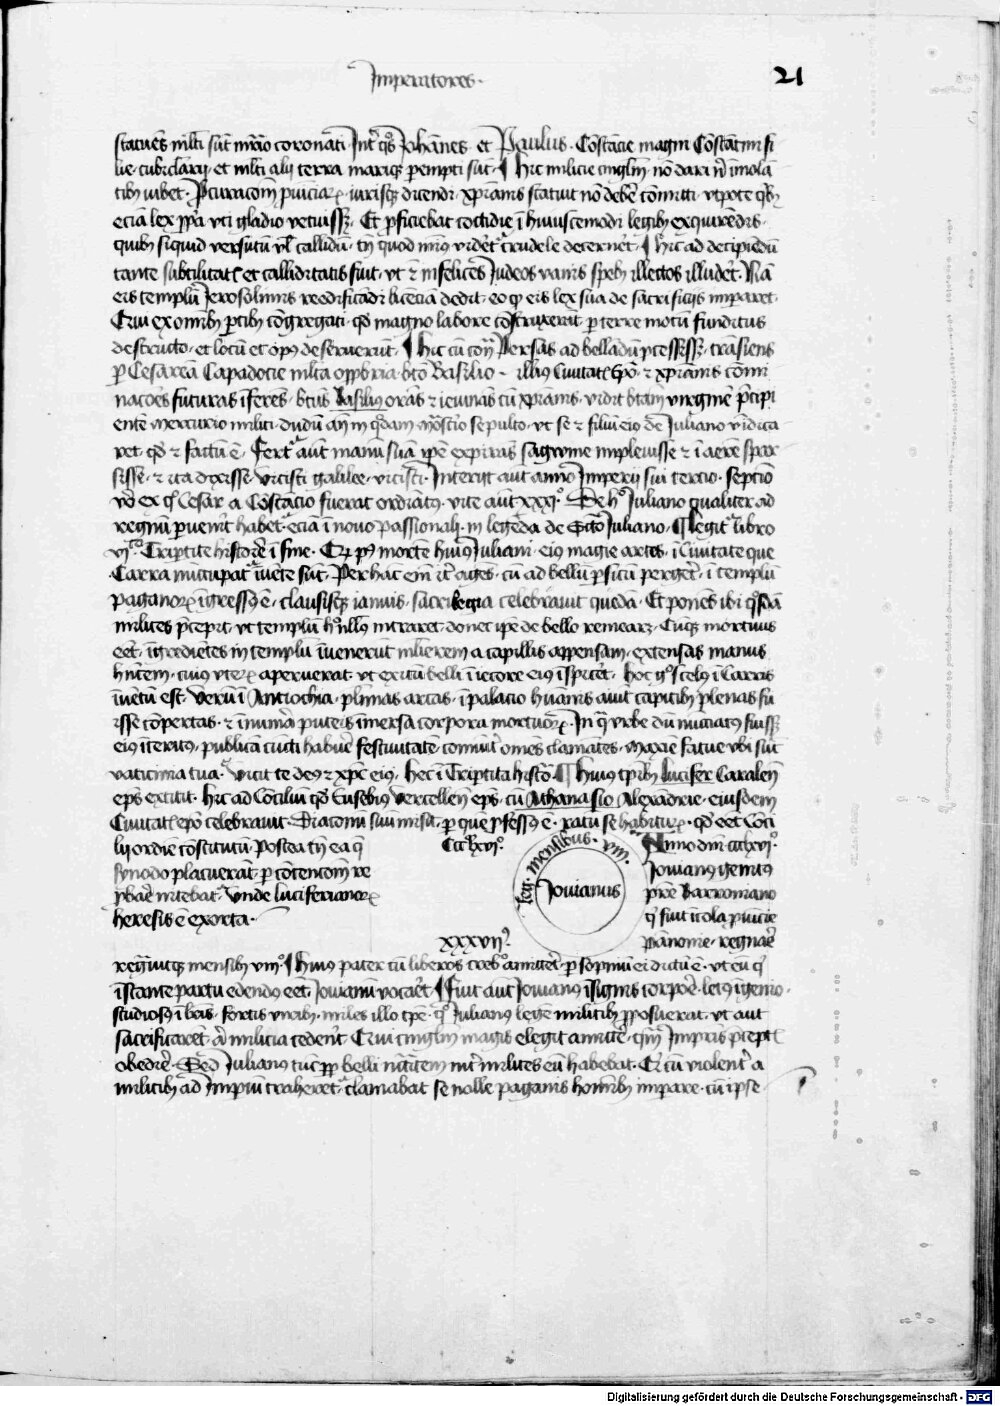 Imperatores.
21
statuēs ml̄ti sūt mr̄io coronati. Int̄ q̄s Johānes et Paulus. Cōstācie magni Cōstātini fi
lie. cubiclarij et ml̄ti alij terra mariq3 pempti sūt. ¶ Hic milicie cinglm̄. nō dari n̄ imola
tib3 iubet. Pcuracōm puīciar. iurisq3 dicendi. xp̄ianis statuit nō debē cōmitti. vtpote qb3
eciā lex ppa vti gladio vetuiss3. Et pficiebat cottidie ī huiuscemodi legib3 exquirēdis.
quib3 siquid versutū vl̄ callidū. tn̄ quod min9 vidēt crudele decernēt. ¶ Hic ad decipiēdū
tante subtilitat et calliditatis fuit. vt & infelices Judeos vanis speb3 illectos illudēt. Nā
eis templū Jerosolimis reedificādi licēciā dedit. eo q eis lex sua de sacrificijs imparet.
Qui ex omīb3 ptib3 cōgregati. qd magno labore cōstruxerūt. p terre motū funditus
destructo. et locū et op9 deseruerūt. ¶ Hic cū cōt Persas ad belladū pcessiss3. trāsiens
p Cesareā Capadocie ml̄ta opp̄bria. bt̄o Basilio. illius Ciuitat Epō. & xp̄ianis cōmi
nacōes futuras īferēs. bt̄us Basilius orās & ieiunās cū xp̄ianis. vidit btam virginē p̄cipi
entē Mercurio militi. dudū an̄ in qdam Mōst̄io sepulto. vt se & filiū ei9 de Juliano vīdica
ret. qd & factū ē. Fert aūt manū suā ipē expirās sagwine impleuisse & ī aere spar
sisse. & ita dixisse vicisti galilee. vicisti. Interijt aut anno Imperij sui tercio. septīo
vo ex q Cesar a Cōstācio fuerat ordiāt9. vite aūt xxxi°. De h° Juliano qualiter ad
regnū puenit habet eciā ī nouo passionali. in legēda de Scto Juliano. ¶ Legit libro
vi to Triptite historie ī fine. Qz p9 mortē hui9 Juliani. ei9 magie artes. ī Ciuitate que
Carra nūcupat īuēte sūt. Per hāc em̄ it̄ ages. cū ad bellū psicū pergēt. ī templū
paganor īgress9 ē. clausisq3 ianuis. sacrilegia celebrauit quedā. Et ponēs ibi qsdā
milites p̄cepit. vt templū h° null9 intraret. donec ipē de bello remear3. Cūq3 mortuus
eēt. īgrediētes in templū īuenerūt ml̄ierem a capillis appensam. extensas manus
hn̄tem. cui9 vter apeuerat. vt exitū belli ī iecore ei9 īspicēt. Hoc g° scel9 ī Carris
īuētū est. Verū ī Antiochia. pl̄imas arcas. ī palacio hūanis aiūt capitib3 plenas fu
isse cōpertas. & īnumā puteis īmersa corpora mortuor. In q vrbe dū nūciat9 fuiss3
ei9 īterit9. publicā cūcti habuē festiuitatē. cōmunit̄ om̄es clamātes. Maxie fatue vbi sūt
vaticinia tua. Vicit te deus & xp̄c ei9. Hec ī Triptita histo. ¶ Hui9 tpib3 Lucifer Caralen̄
ep̄s extitit. Hic ad Cōciliū qd Eusebi9 Vercellen̄ ep̄s. cū Athanasio Alexādrie. eiusdem
Ciuitat epō celebrauit. Diaconū suū misit. p quē pfess9 ē. ratū se habitur. qd eēt Cōci
lij ordie cōstitutū. Postea tn̄ ea q
synodo placuerāt. p cōtencom re
pbaē nitebat. Vnde luciferianor
heresis ē exorta.
CCClxvi°.
reg. mensibus. viij.
Jouianus
xxxvii°.
Anno dnī ccclxvi°.
Jouianus genit9
pr̄e Varroniano
q fuit īcola puicie
Pānonie. regnaē
regnuitq3 mensib3 viij°. ¶ Hui9 pater cū liberos creb° amittēt. p sopniū ei dictū ē. vt eū q
īstante partu edend9 eēt. Jouianū vocaēt. ¶ Fuit aūt Jouian9 īsignis corpoē. let9 īgenio.
studios9 ī lr̄is. fortis virib3. miles illo tpē. q° Julian9 legē militib3 pposuerat. vt aut
sacrificarēt. aut milicia cedent. Qui cinglm̄ magis elegit amittē. qm̄ Impris p̄cept
obedrē. Sed Julian9 tūc pp belli n̄citatem int̄ milites eū habebat. Qz cū violent̄ a
militib3 ad Impiū traheret. clamabat se nolle paganis homīb3 impare. cū ipse
Digitalisierung gefördert durch die Deutsche Forschungsgemeinschaft - DFG